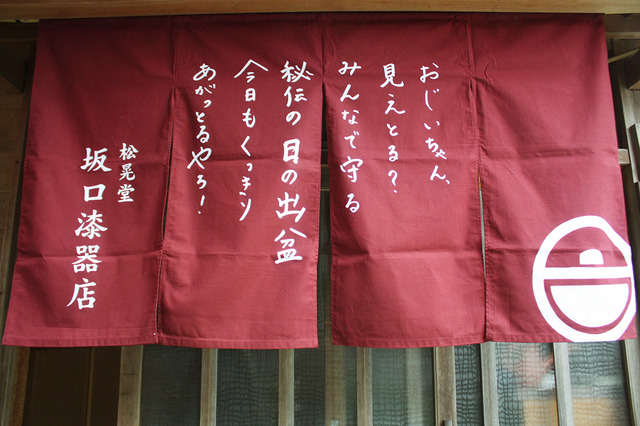 おじいちゃん、
見えとる?
みんなで守る
秘伝の日の出盆
今日もくっきり
あがっとるやろ!
松晃堂
坂口漆器店